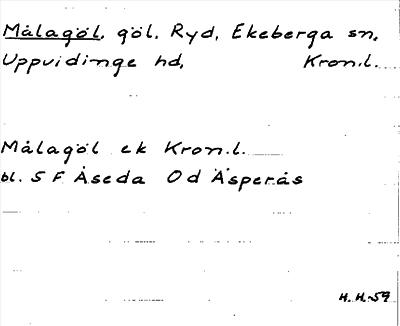 Målagöl, göl, Ryd, Ekeberga sn,
Uppvidinge hd, Kron.l.
Målagöl ek Kron.l.
bl. 5 F Åseda Od Äsperås
H. H. 59